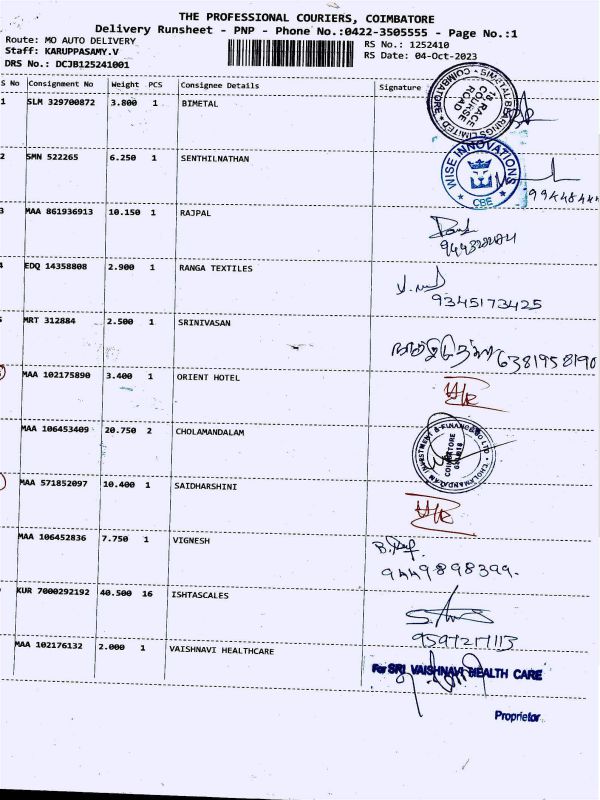 THE PROFESSIONAL COURIERS, COIMBATORE
Delivery Runsheet - PNP - Phone No.:0422-3505555 - Page No.:1
Route: MO AUTO DELIVERY
Staff: KARUPPASAMY.V
DRS No.: DCJB125241001
RS No.: 1252410
RS Date: 04-Oct-2023
S No Consignment No Weight PCS Consignee Details Signature
1 SLM 329700872 3.800 1 BIMETAL
BIMETAL BEARINGS LIMITED COIMBATORE
18 RACE COURSE ROAD
2 SMN 522265 6.250 1 SENTHILNATHAN
WISE INNOVATIONS
CBE
3 MAA 861936913 10.150 1 RAJPAL
4 EDQ 14358808 2.900 1 RANGA TEXTILES
9345173425
MRT 312884 2.500 1 SRINIVASAN
6381958190
MAA 102175890 3.400 1 ORIENT HOTEL
MAA 106453409 20.750 2 CHOLAMANDALAM
CHOLAMANDALAM INVESTMENT & FINANCE CO LTD
COIMBATORE
MAA 571852097 10.400 1 SAIDHARSHINI
MAA 106452836 7.750 1 VIGNESH
9449898399.
KUR 7000292192 40.500 16 ISHTASCALES
MAA 102176132 2.000 1 VAISHNAVI HEALTHCARE
For SRI VAISHNAVI HEALTH CARE
Proprietor